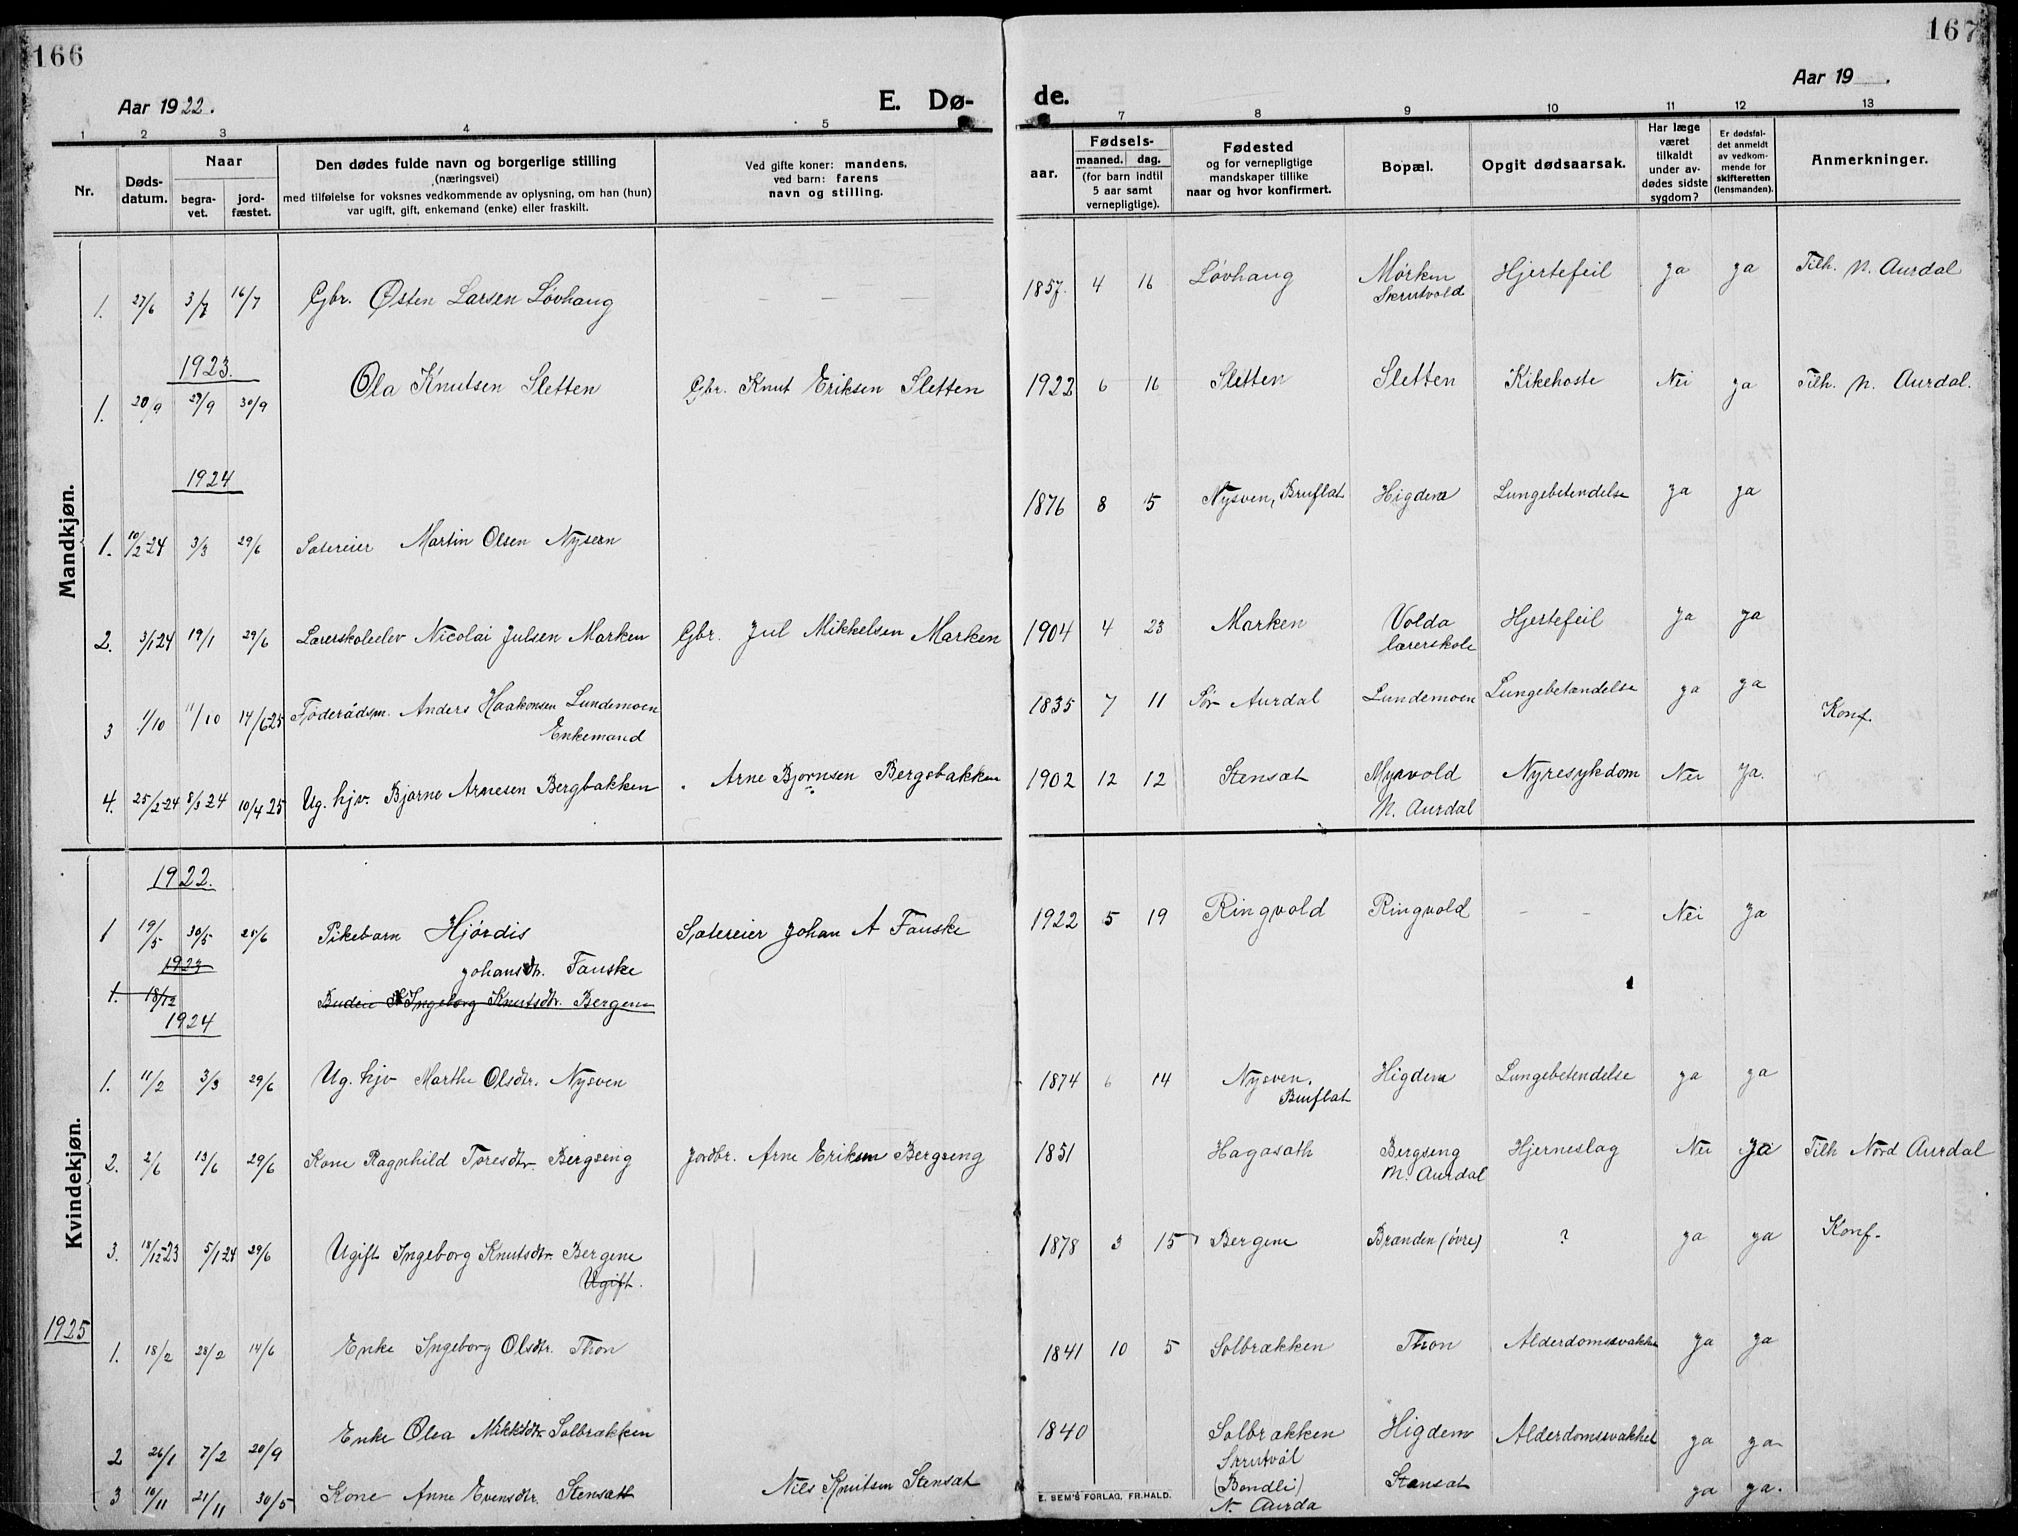 166
167
Aar 1922.
E. Dø-
de.
Aar 19 .
1 2 3 4 5 7 8 9 10 11 12 13
Nr.
Døds-
datum.
Naar
begra-
vet.
jord-
fæstet.
Den dødes fulde navn og borgerlige stilling
(næringsvei)
med tilføielse for voksnes vedkommende av oplysning, om han (hun)
var ugift, gift, enkemand (enke) eller fraskilt.
Ved gifte koner: mandens,
ved barn: farens
navn og stilling.
Fødsels-
aar.
maaned. dag.
(for barn indtil
5 aar samt
vernepligtige).
Fødested
og for vernepligtige
mandskaper tillike
naar og hvor konfirmert.
Bopæl.
Opgit dødsaarsak.
Har læge
været
tilkaldt
under av-
dødes sidste
sygdom?
Er dødsfal-
det anmeldt
av vedkom-
mende for
skifteretten
(lensmanden).
Anmerkninger.
Mandkjøn.
1. 27/6 3/7 16/7 Gbr. Østen Larsen Løvhaug — — — 1857. 4 16 Løvhaug Mørken Hjertefeil ja ja Tilh. N. Aurdal
Skrutvold
1923.
1. 20/9 29/9 30/9 Ola Knutsen Sletten Gbr. Knut Eriksen Sletten 1922 6 16 Sletten Sletten Kikehoste Nei ja Tilh. N. Aurdal.
1924
1. 10/2 24 3/3 29/6 Sætereier Martin Olsen Nysven 1876 8 5 Nysven, Bruflat Higdem Lungebetendelse ja ja
2. 3/1 24 19/1 29/6 Lærerskoleelev Nicolai Julsen Marken Gbr. Jul Mikkelsen Marken 1904 4 23 Marken Volda Hjertefeil ja ja
lærerskole
3 1/10 11/10 14/6 25 Føderådsm. Anders Haakonsen Lundemoen 1835 7 11 Sør Aurdal Lundemoen Lungebetændelse ja ja Konf.
Enkemand
4. 25/2 24 8/3 24 10/4 25 Ug. hjv. Bjarne Arnesen Bergbakken Arne Bjørnsen Bergsbakken 1902 12 12 Stensæt Myrvold Nyresykdom Nei ja.
N. Aurdal
Kvindekjøn.
1922.
1 19/5 30/5 25/6 Pikebarn Hjørdis Sætereier Johan A Fauske 1922 5 19 Ringvold Ringvold — — Nei ja
Johansdtr. Fauske
1923
1. 18/12 Budeie Ingeborg Knutsdtr. Bergene
1924
1. 11/2 3/3 29/6 Ug. hjv Marthe Olsdtr. Nysven 1874 6 14 Nysven, Higdem Lungebetendelse ja ja
Bruflat
2. 2/6 13/6 29/6 Kone Ragnhild Toresdtr Bergseng Jordbr. Arne Eriksen Bergseng 1851 Hagasæth Bergseng Hjerneslag Nei ja Tilh Nord Aurdal
N. Aurdal
3. 18/12 23 5/1 24 29/6 Ugift Ingeborg Knutsdtr. Bergene 1878 3 15 Bergene Branden (øvre) ? ja ja Konf.
Ugift.
1925
1. 18/2 28/2 14/6 Enke Ingeborg Olsdtr. Thon 1841 10 5 Solbrækken Thon Alderdomssvakhe ja ja
2 26/1 7/2 20/9 Enke Olea Mikkelsdtr. Solbrækken 1840 Solbrækken Higdem Alderdomssvakhet ja ja
Skrutvål
3 10/11 21/11 30/5 Kone Anne Evensdtr. Stensæth Nils Knutsen Stensæt (Bondli) Stensæt ja ja.
N. Aurda
E. SEM'S FORLAG, FR.HALD.